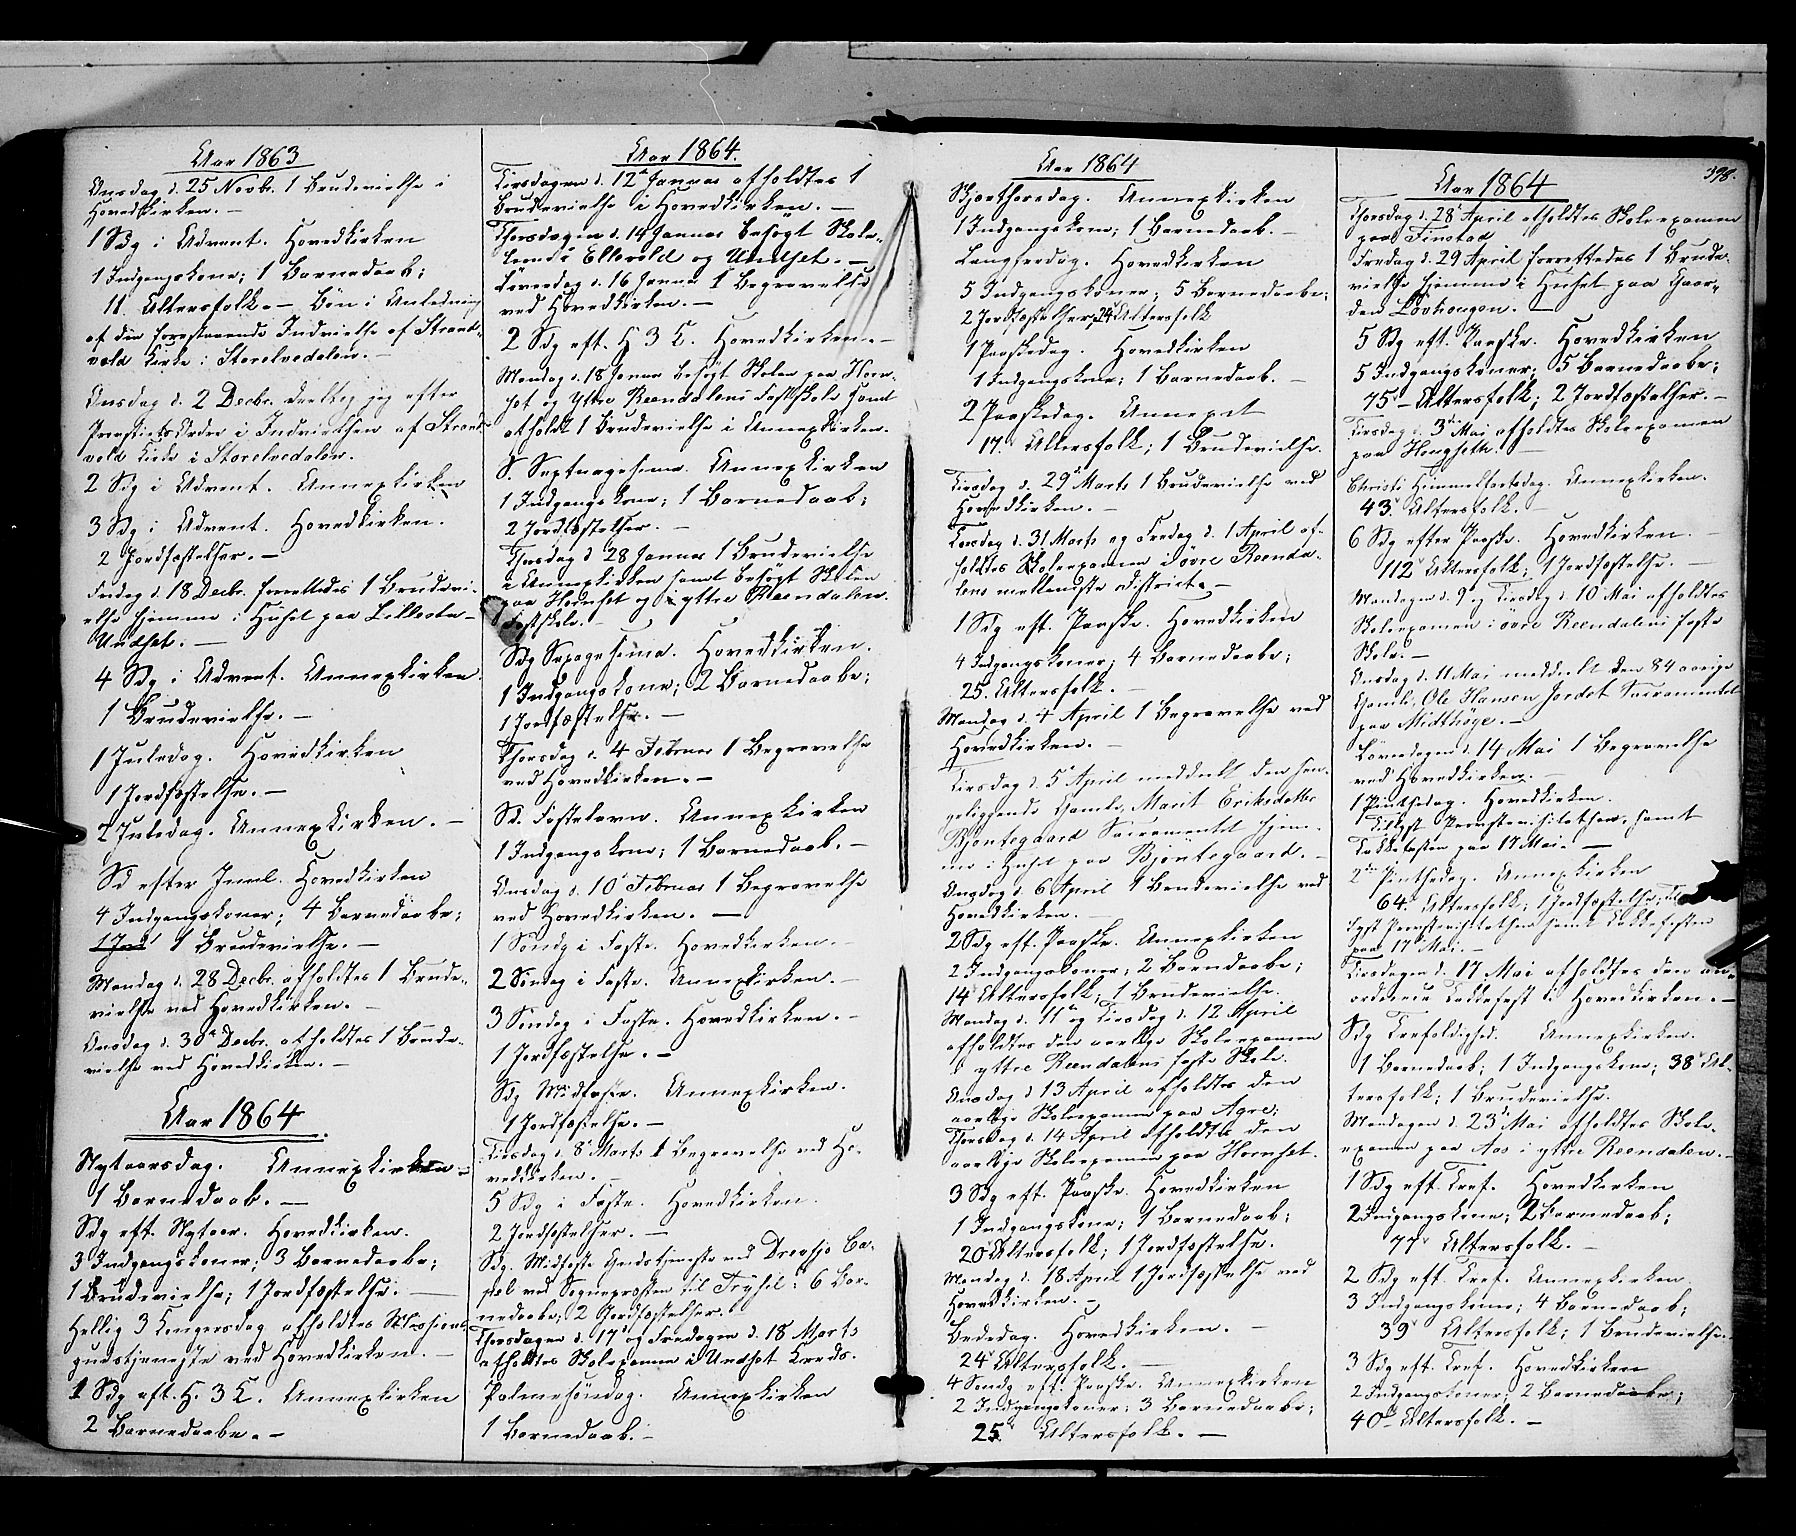 Aar 1863
Onsdag d. 25 Novb. 1 Brudevielse i
Hovedkirken. —
1 Sdg i Advent. Hovedkirken
1 Indgangskone; 1 Barnedaab;
11 Altersfolk. — Bön i Anledning
af den forestaaende Indvielse af Strand-
vold Kirke i Storelvedalen. —
Onsdag d. 2 Decbr. deeltog jeg efter
Provstiets Ordre i Indvielsen af Strand-
vold Kirke i Storelvedalen.
2 Sdg i Advent. Annexkirken
3 Sdg i Advent. Hovedkirken.
2 Jordfæstelser. —
Fredag d. 18 Decbr. forrettedes 1 Brudevi-
else hjemme i Huset paa Lillestu-
Undset. —
4 Sdg i Advent. Annexkirken.
1 Brudevielse. —
1 Juledag. Hovedkirken
1 Jordfæstelse. —
2 Juledag. Annexkirken. —
Sd efter Juul. Hovedkirken
4 Indgangskoner; 4 Barnedaabe;
1 Brudevielse. —
Mandag d. 28 Decbr. afholdtes 1 Brude-
vielse ved Hovedkirken. —
Onsdag d. 30 Decbr. afholdtes 1 Brude-
vielse ved Hovedkirken. —
Aar 1864
Nytaarsdag. Annexkirken —
1 Barnedaab. —
Sdg eft. Nytaar. Hovedkirken.
3 Indgangskoner; 3 Barnedaabe;
1 Brudevielse; 1 Jordfæstelse. —
Hellig 3 Kongersdag afholdtes Missions
gudstjeneste ved Hovedkirken. —
1 Sdg eft. H. 3 K. Annexkirken
2 Barnedaabe. —
Aar 1864.
Tirsdagen d. 12 Januar afholdtes 1
Brudevielse i Hovedkirken. —
Thorsdagen d. 14 Januar besögt Skole-
kreds Ellevold og Undset. —
Löverdag d. 16 Januar 1 Begravelse
ved Hovedkirken. —
2 Sdg eft. H 3 K. Hovedkirken. —
Mandag d. 18 Januar besögt Skolen paa Horn-
set og Yttre Reendalens Fastskole samt
afholdt 1 Brudevielse i Annexkirken.
S. Septuagesima. Annexkirken
1 Indgangskone; 1 Barnedaab;
2 Jordfæstelser. —
Thorsdag d. 28 Januar 1 Brudevielse
i Annexkirken samt besögt Skolen
paa Hornset og i yttre Reendalens
Fastskole. —
Sdg Sexagesima. Hovedkirken.
1 Indgangskone; 2 Barnedaabe;
1 Jordfæstelse. —
Thorsdag d. 4 Februar 1 Begravelse
ved Hovedkirken. —
Sd. Fastelavn. Annexkirken
1 Indgangskone; 1 Barnedaab. —
Onsdag d. 10 Februar 1 Begravelse
ved Hovedkirken. —
1 Söndg i Faste. Hovedkirken. —
2 Söndag i Faste. Annexkirken. —
3 Söndag i Faste. Hovedkirken. —
1 Jordfæstelse. —
Sdg Midfaste. Annexkirken.
1 Jordfæstelse. —
Tirsdag d. 8 Marts 1 Begravelse ved Ho-
vedkirken. —
5 Sdg i Faste. Hovedkirken.
2 Jordfæstelser. —
Sdg. Midfaste Gudstjeneste ved Drevsjø Ca-
pel ved Sognepræsten til Trysil: 6 Bar-
nedaabe; 2 Jordfæstelser.
Thorsdagen d. 17 og Fredagen d. 18 Marts
afholdtes Skoleexamen i Undset Kreds.
Palmesöndag. Annexkirken
1 Barnedaab. —
Aar 1864
Skjærthorsdag. Annexkirken
1 Indgangskone; 1 Barnedaab. —
Langfredag. Hovedkirken
5 Indgangskoner; 5 Barnedaabe;
2 Jordfæstelser; 24 Altersfolk
1 Paaskedag. Hovedkirken
1 Indgangskone; 1 Barnedaab. —
2 Paaskedag. Annexet
17. Altersfolk; 1 Brudevielse.
Tirsdag d. 29 Marts 1 Brudevielse ved
Hovedkirken. —
Torsdag d. 31 Marts og Fredag d. 1 April af-
holdtes Skoleexamen i övre Reenda-
lens mellemste District. —
1 Sdg eft. Paaske. Hovedkirken
4 Indgangskoner; 4 Barnedaabe;
25. Altersfolk. —
Mandag d. 4 April 1 Begravelse ved
Hovedkirken. —
Tirsdag d. 5 April meddelt den sen-
geliggende Gamle, Marit Eriksdatter
Bjöntegaard Sacramentet hjem-
me i Huset paa Bjöntegaard. —
Onsdag d. 6 April 1 Brudevielse ved
Hovedkirken. —
2 Sdg eft. Paaske. Annexkirken
2 Indgangskoner; 2 Barnedaabe;
14 Altersfolk; 1 Brudevielse.
Mandag d. 11 og Tirsdag d. 12 April
afholdtes den aarlige Skoleexamen
i yttre Reendalens faste Skole.
Onsdag d. 13 April afholdtes den
aarlige Skoleexamen paa Agre;
Thorsdag d. 14 April afholdtes den
aarlige Skoleexamen paa Hornset.
3 Sdg eft. Paaske. Hovedkirken
1 Indgangskone; 1 Barnedaab;
20 Altersfolk; 1 Jordfæstelse.
Mandag d. 18 April 1 Jordfæstelse ved
Hovedkirken. —
Bededag. Hovedkirken. —
24 Altersfolk. —
4 Sondg eft. Paaske. Annexkirken
2 Indgangskoner; 3 Barnedaabe;
25. Altersfolk. —
398.
Aar 1864
Thorsdag d. 28 April afholdtes Skoleexamen
paa Finstad
Fredag d. 29 April forrettedes 1 Brude-
vielse hjemme i Huset paa Gaar-
den Lövhougen. —
5 Sdg eft. Paaske. Hovedkirken
5 Indgangskoner; 5 Barnedaabe;
75 — Altersfolk; 2 Jordfæstelser. —
Tirsdag d. 3 Mai afholdtes Skoleexamen
paa Haugseth. —
Christi Himmelfartsdag. Annexkirken.
43. Altersfolk. —
6 Sdg efter Paaske. Hovedkirken. —
112 Altersfolk; 1 Jordfæstelse. —
Mandagen d. 9 og Tirsdag d. 10 Mai afholdtes
Skoleexamen i övre Reendalens faste
Skole. —
Onsdag d. 11 Mai meddeelt den 84 aarige
Gamle, Ole Hansen Jordet Sacramentet
paa Midthöge. —
Löverdagen d. 14 Mai 1 Begravelse
ved Hovedkirken. —
1 Pintsedag. Hovedkirken.
Tillyst Provstevisitatsen, samt
Takkefesten paa 17 Mai. —
2 Pintsedag. Annexkirken
64. Altersfolk; 1 Jordfæstelse;
lyst Provstevisitatsen samt Takkefesten
paa 17 Mai. —
Tirsdagen d. 17 Mai afholdtes den an-
ordnede Takkefest i Hovedkirken. —
Sdg Trefoldighed. Annexkirken.
1 Barnedaab; 1 Indgangskone; 38 Al-
tersfolk; 1 Brudevielse.
Mandagen d. 23 Mai afholdtes Skole-
examen paa Aas i yttre Reendalen. —
1 Sdg eft. Tref. Hovedkirken
2 Indgangskone; 2 Barnedaab;
77 Altersfolk. —
2 Sdg eft. Tref. Annexkirken.
3 Indgangskoner; 4 Barnedaab;
39 Altersfolk; 1 Brudevielse.
3 Sdg eft. Tref. Hovedkirken
2 Indgangskoner; 2 Barnedaabe;
40 Altersfolk. —